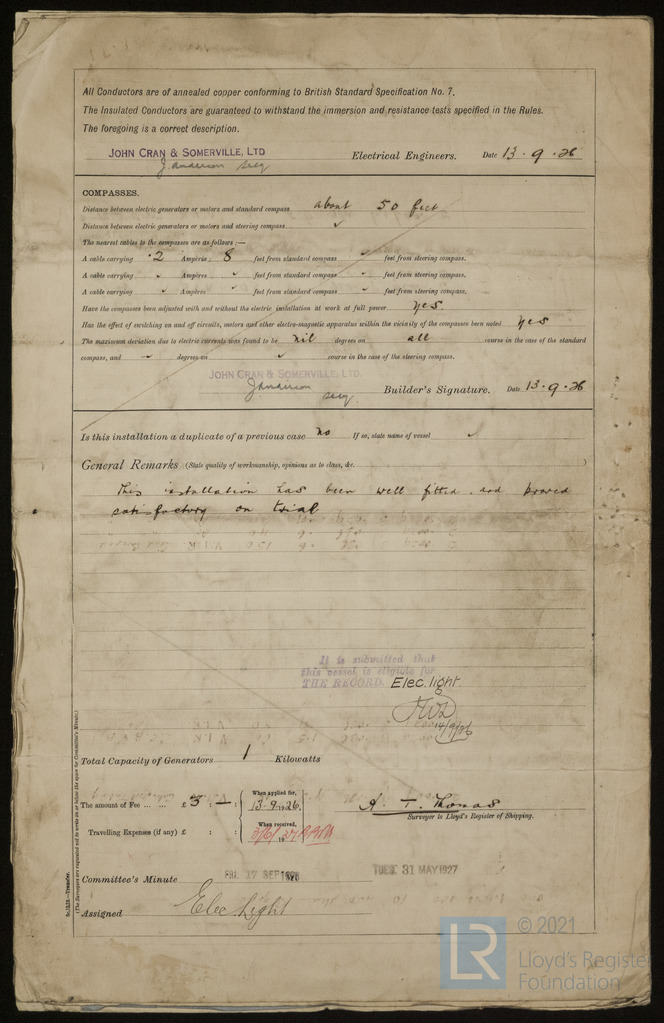 All Conductors are of annealed copper conforming to British Standard Specification No. 7.
The Insulated Conductors are guaranteed to withstand the immersion and resistance tests specified in the Rules.
The foregoing is a correct description.
JOHN CRAN & SOMERVILLE, LTD Electrical Engineers. Date 13 . 9 . 26
J Anderson secy
COMPASSES.
Distance between electric generators or motors and standard compass about 50 feet
Distance between electric generators or motors and steering compass ✓
The nearest cables to the compasses are as follows :—
A cable carrying .2 Ampères 8 feet from standard compass feet from steering compass.
A cable carrying Ampères feet from standard compass feet from steering compass.
A cable carrying Ampères feet from standard compass feet from steering compass.
Have the compasses been adjusted with and without the electric installation at work at full power yes.
Has the effect of switching on and off circuits, motors and other electro-magnetic apparatus within the vicinity of the compasses been noted yes
The maximum deviation due to electric currents was found to be nil degrees on all course in the case of the standard
compass, and degrees on course in the case of the steering compass.
JOHN CRAN & SOMERVILLE, LTD.
J Anderson secy. Builder's Signature. Date 13 . 9 . 26
Is this installation a duplicate of a previous case no If so, state name of vessel
General Remarks (State quality of workmanship, opinions as to class, &c. )
This installation has been well fitted and proved
satisfactory on trial
It is submitted that
this vessel is eligible for
THE RECORD. Elec. light.
14/9/26
Total Capacity of Generators 1 Kilowatts
The amount of Fee ... ... £ 3 : — : When applied for, 13.9.1926.
A. T. Thomas
Surveyor to Lloyd's Register of Shipping.
Travelling Expenses (if any) £ : : When received, 3/6/1927
Committee's Minute FRI. 17 SEP 1926 TUES. 31 MAY 1927
Assigned Elec Light
(The Surveyors are requested not to write on or below the space for Committee's Minute.)
© 2021
LR Lloyd's Register
Foundation